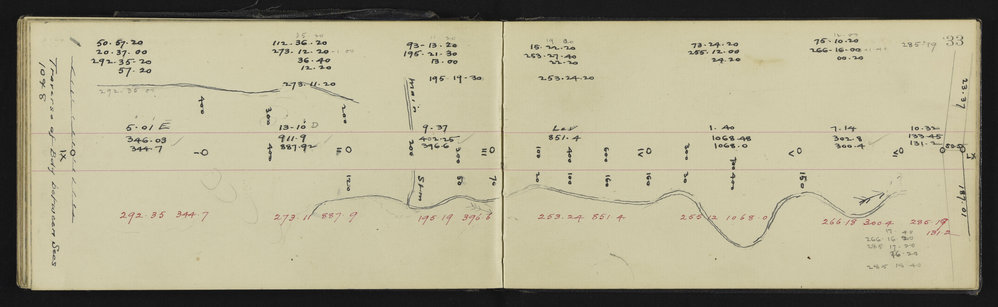 33
50.57.20
20.37.00
292.35.20
57.20
292.35.00
112.36.20
273.12.20
36.40
12.20
273.11.20
93-13.20
195.21.30
13.00
195.19.30
15.22.20
253.27.40
22.20
253.24.20
73.24.20
255.12.00
24.20
75-10.20
266-16.00
00.20
285.19
23.37
400
300
200
main
5.01 E
346.03
344.7
13-10 D
911.9
887.92
9.37
402.25
396.6
Lev
851.4
1.40
1068.48
1068.0
7.14
302.8
300.4
10.32
133.45
131.2
400
II
200
300
III
100
400
600
IV
200
700
V
VI
120
Stm
50
70
20
100
160
150
150
187.01
292.35 344.7
273.11 887.9
195.19 396.6
253.24 851.4
255.12 1068.0
266.18 300.4
285.19
131.2
17 40
266.16.20
285.17.20
16.20
285.18 40
Traverse of Bdy between Secs
IX
1098